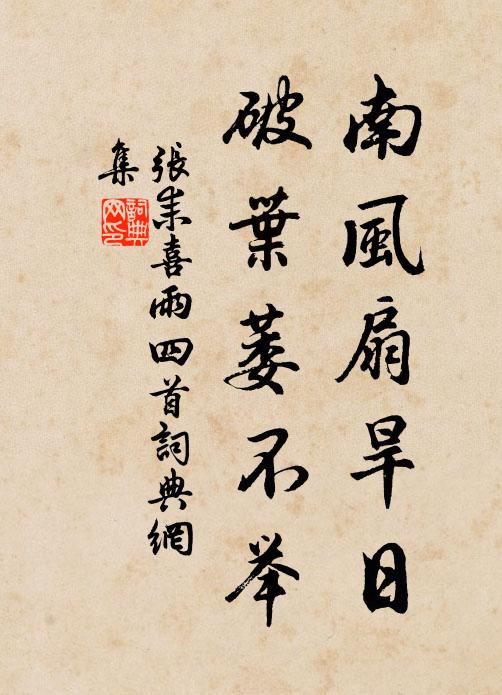 南風扇旱日
破葉萎不举
張耒喜雨四首詞典網
集
詞典
网印